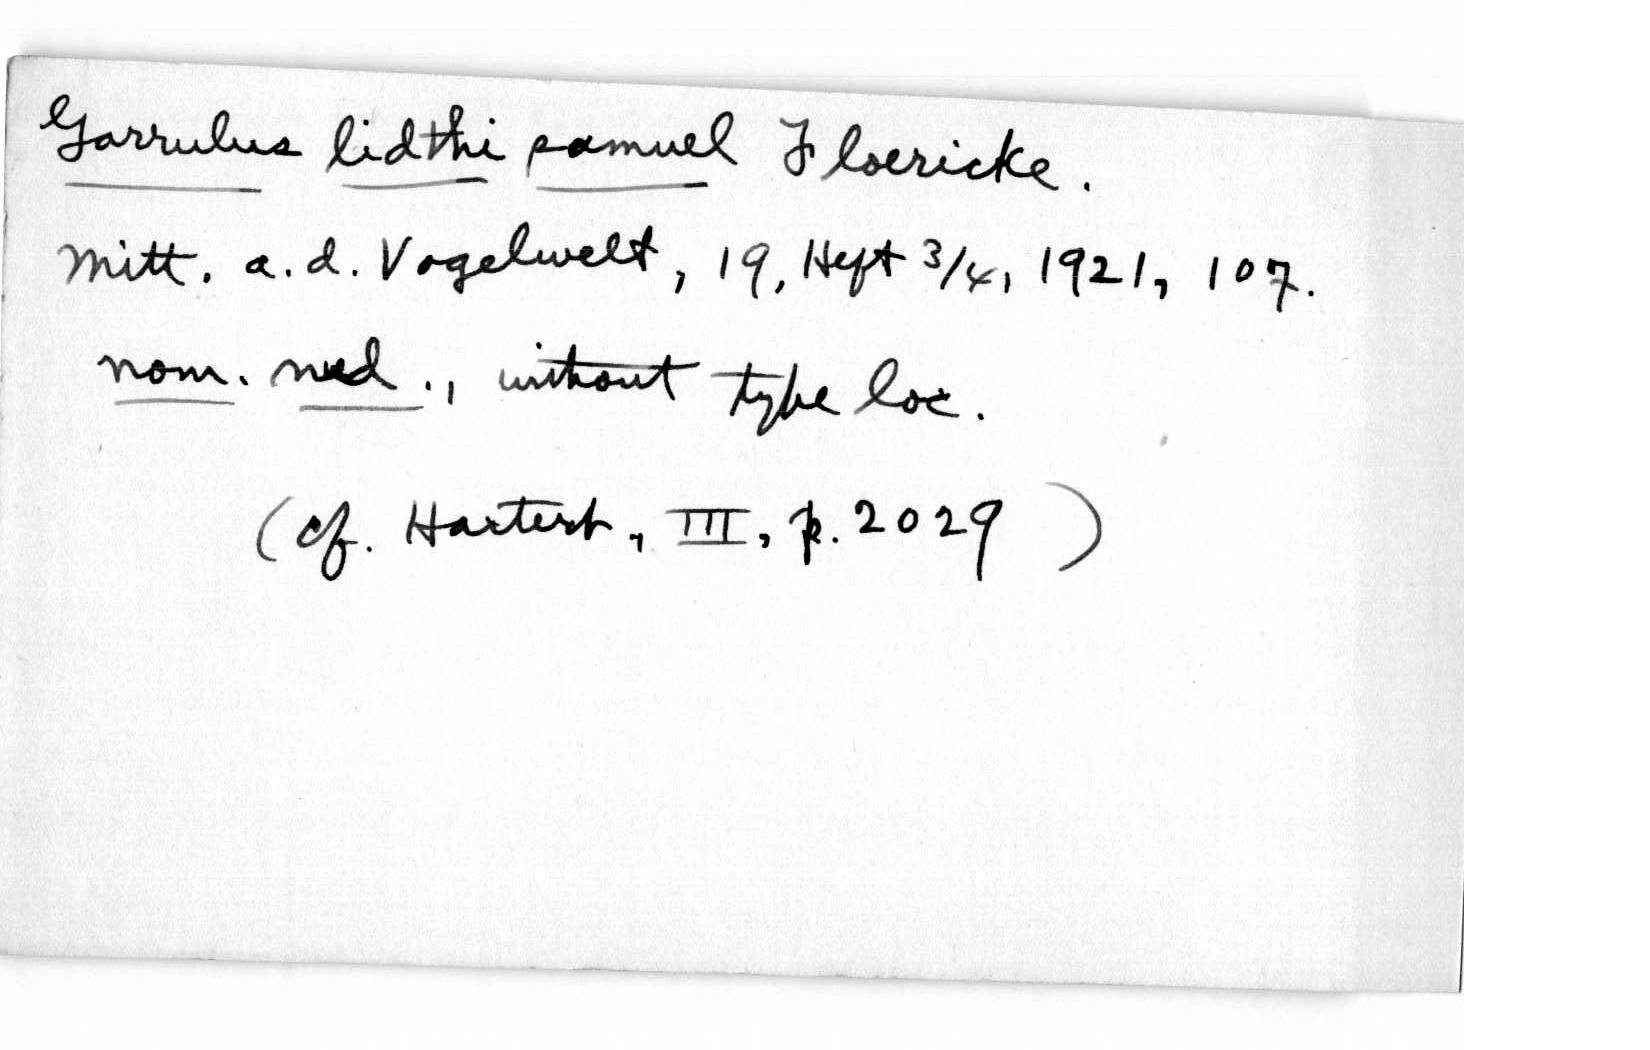 Garrulus lidthi samuel Floericke.
Mitt. a. d. Vogelwelt, 19, Heft 3/4, 1921, 107.
nom. nud., without type loc.
(cf. Hartert, III, p. 2029)